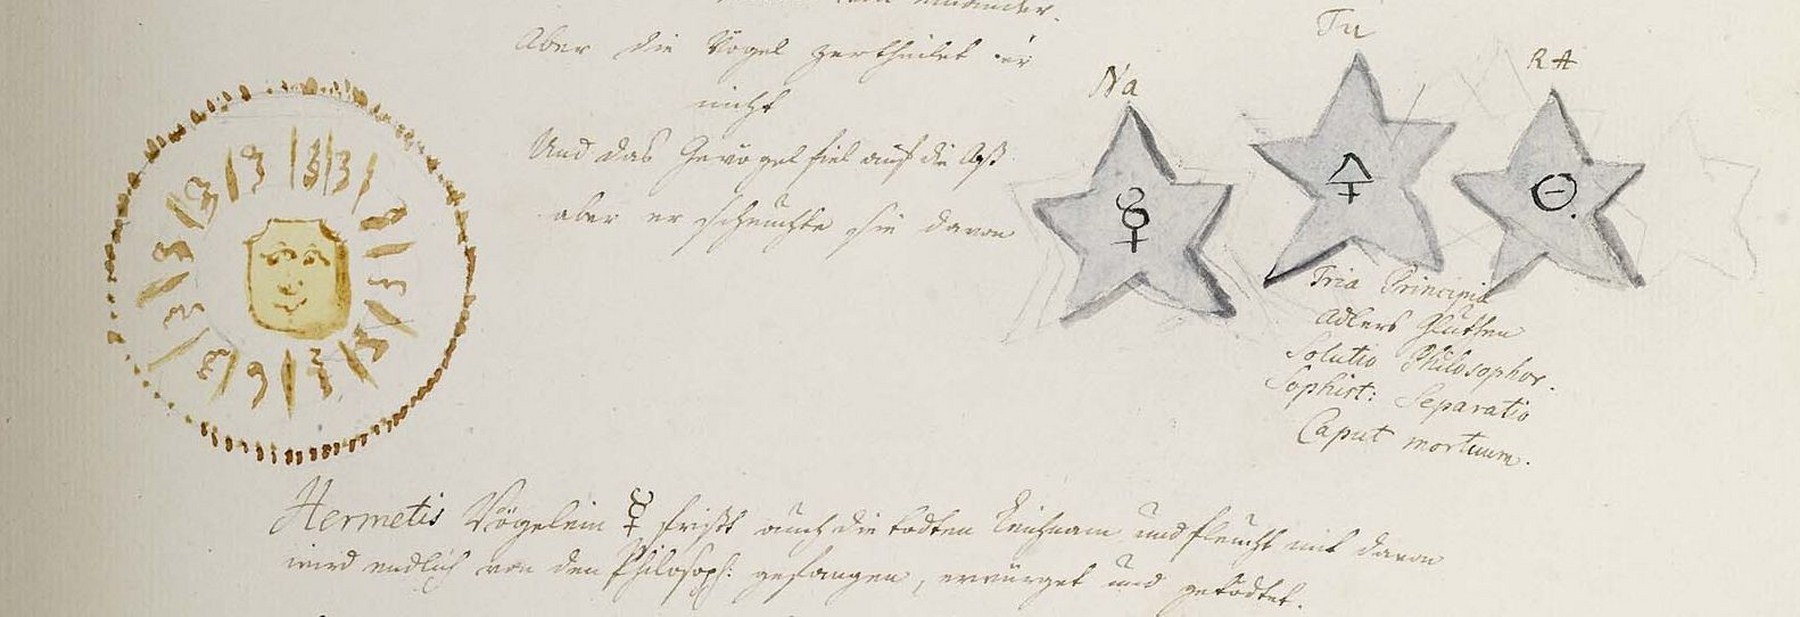 einander.
Aber die Vögel zertheilet er
nicht
Und das Gevögel fiel auf die Aß
aber er scheuchte sie davon
Na
Tu
RA
☿
🜍
Tria Principia
Adlers Glutten
Solutio Philosophor.
Sophist: Separatio
Caput mortuum.
Hermetis Vögelein ☿ frißt auch die todten Leichnam und fleucht mit davon
wird endlich von den Philosoph: gefangen, erwürget und getödtet.